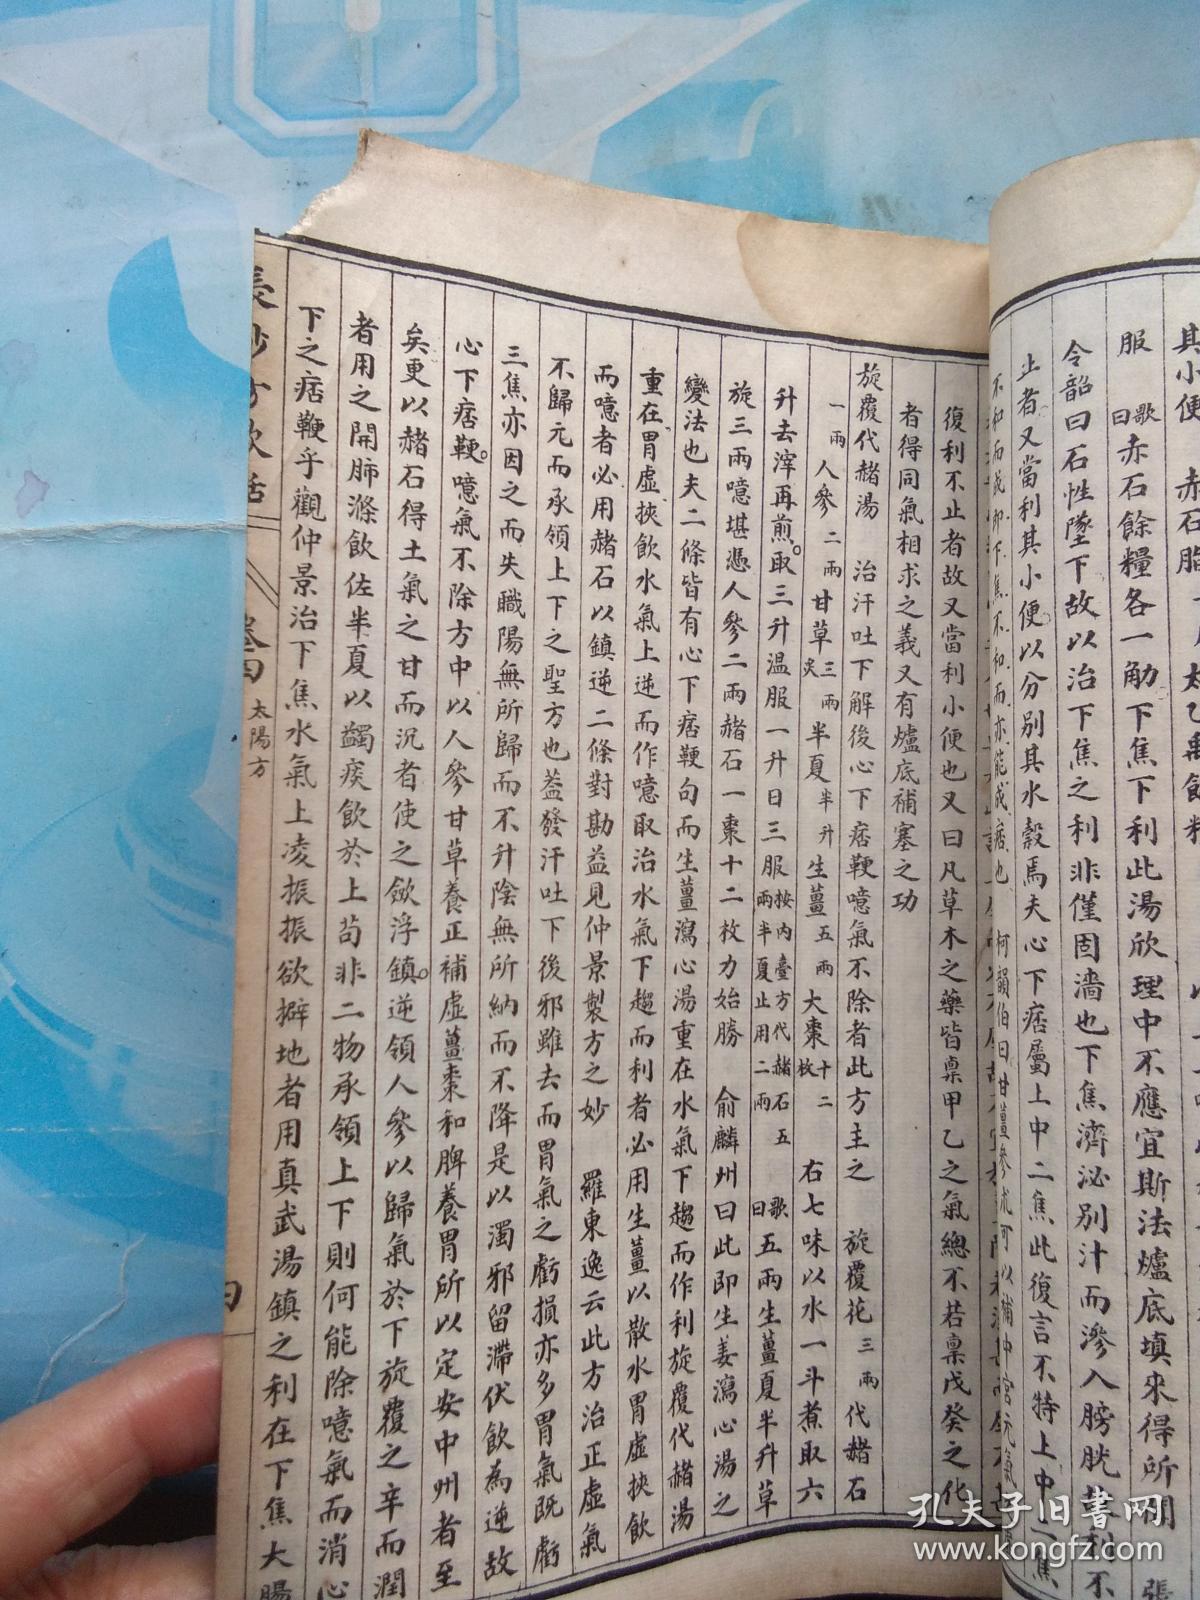 其小便
服歌曰赤石餘糧各一觔下焦下利此湯欣理中不應宜斯法爐底填來得所閒
令韶曰石性墜下故以治下焦之利非僅固濇也下焦濟泌別汁而滲入膀胱
止者又當利其小便以分別其水穀焉夫心下痞屬上中二焦此復言不特上中二焦
不和而成即下焦不和而亦能成痞也 柯韻伯曰甘薑參朮可以補中宮元氣
復利不止者故又當利小便也又曰凡草木之藥皆稟甲乙之氣總不若稟戊癸之化
者得同氣相求之義又有爐底補塞之功
旋覆代赭湯 治汗吐下解後心下痞鞕噫氣不除者此方主之 旋覆花三兩代赭石
一兩人參二兩甘草三兩炙半夏半升生薑五兩大棗十二枚 右七味以水一斗煮取六
升去滓再煎取三升溫服一升日三服按內臺方代赭石五兩半夏止用二兩 歌曰五兩生薑夏半升草
旋三兩噫堪憑人參二兩赭石一棗十二枚力始勝 俞麟州曰此即生姜瀉心湯之
變法也夫二條皆有心下痞鞕句而生薑瀉心湯重在水氣下趨而作利旋覆代赭湯
重在胃虛挾飲水氣上逆而作噫取治水氣下趨而利者必用生薑以散水胃虛挾飲
而噫者必用赭石以鎮逆二條對勘益見仲景製方之妙 羅東逸云此方治正虛氣
不歸元而承領上下之聖方也蓋發汗吐下後邪雖去而胃氣之虧損亦多胃氣既虧
三焦亦因之而失職陽無所歸而不升陰無所納而不降是以濁邪留滯伏飲為逆故
心下痞鞕噫氣不除方中以人參甘草養正補虛薑棗和脾養胃所以定安中州者至
矣更以赭石得土氣之甘而沉者使之斂浮鎮逆領人參以歸氣於下旋覆之辛而潤
者用之開肺滌飲佐半夏以蠲痰飲於上苟非二物承領上下則何能除噫氣而消心
下之痞鞕乎觀仲景治下焦水氣上凌振振欲擗地者用真武湯鎮之利在下焦大腸
長沙方歌括 卷四 太陽方
孔夫子旧书网
www.kongfz.com